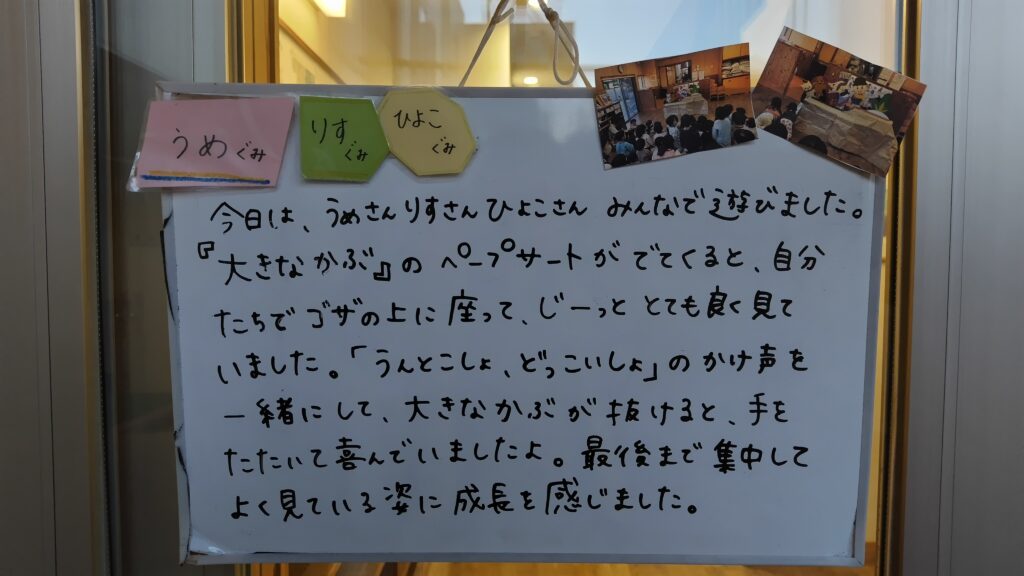 うめぐみ
りすぐみ
ひよこぐみ
今日は、うめさんりすさんひよこさん みんなで遊びました。
『大きなかぶ』の ペープサートがでてくると、自分
たちでゴザの上に座って、じーっと とても良く見て
いました。「うんとこしょ、どっこいしょ」のかけ声を
一緒にして、大きなかぶが抜けると、手を
たたいて喜んでいましたよ。最後まで集中して
よく見ている姿に成長を感じました。